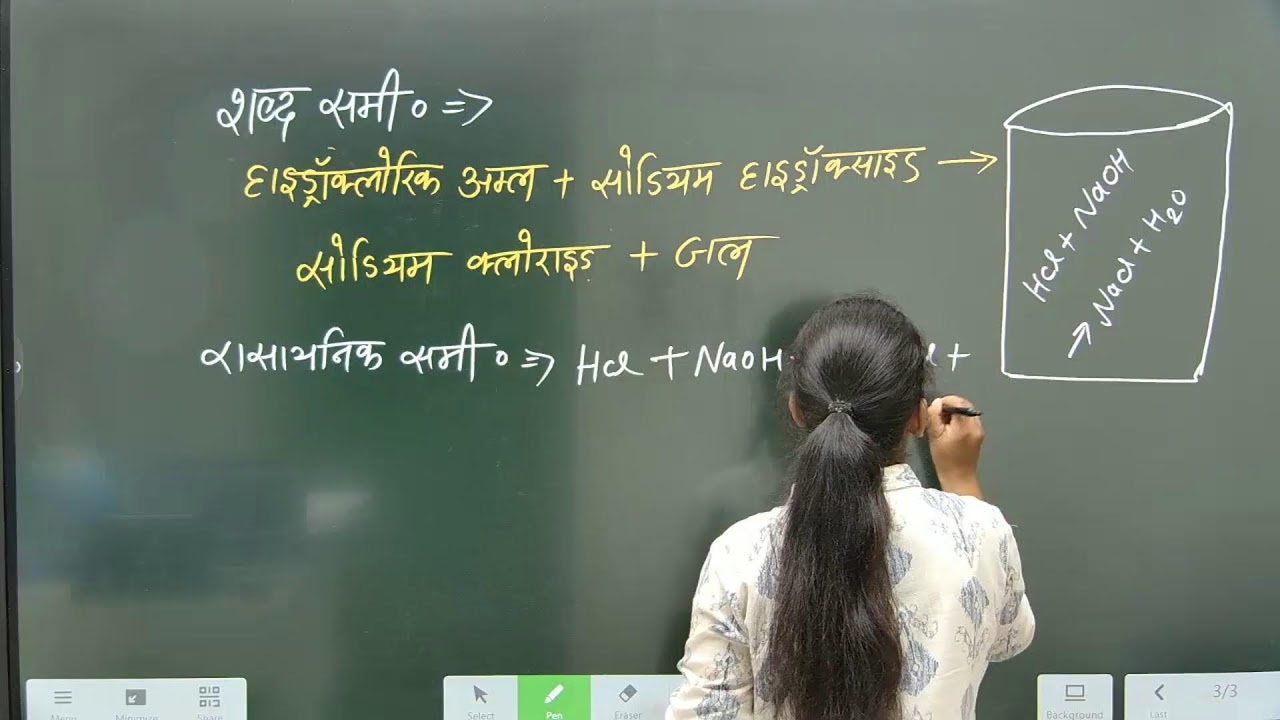 शब्द समी० =>
हाइड्रॉक्लोरिक अम्ल + सोडियम हाइड्रॉक्साइड →
सोडियम क्लोराइड + जल
रासायनिक समी० => HCl + NaOH
l +
HCl + NaOH
→ NaCl + H2O
Menu
Minimize
Share
Select
Pen
Eraser
Background
Last
3/3